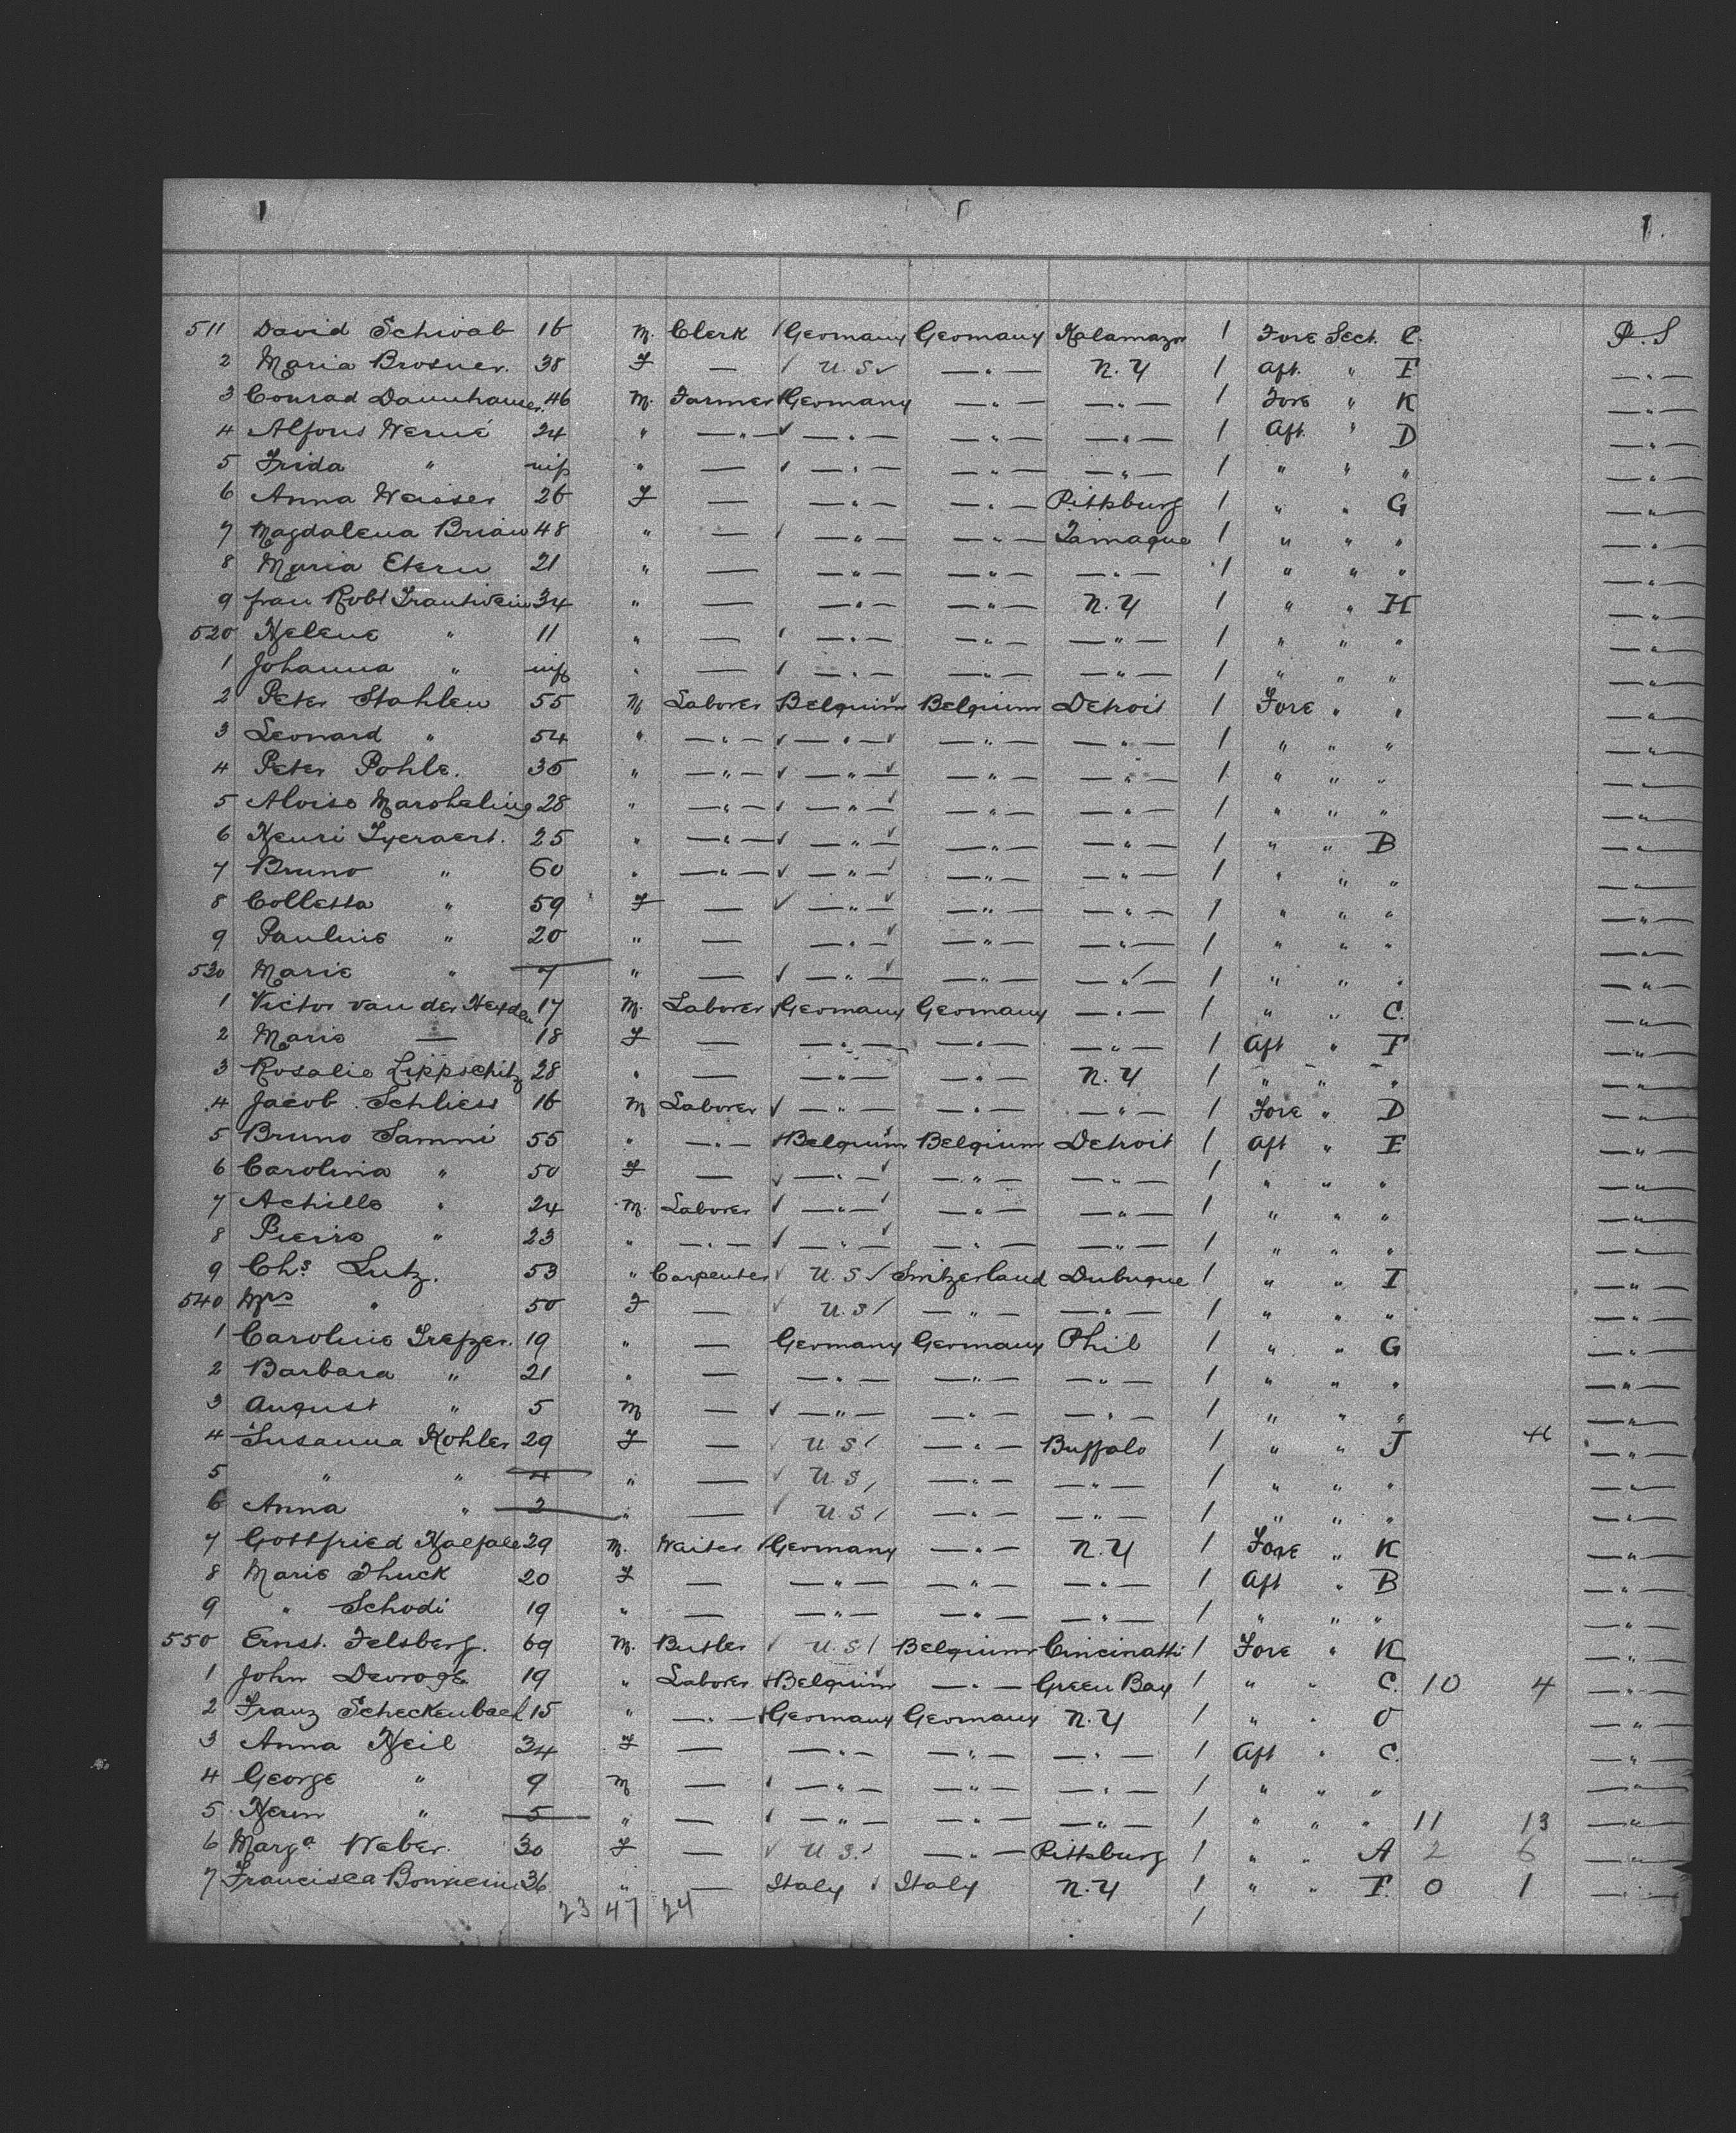 511 David Schwab 16 M. Clerk Germany Germany Kalamazoo 1 Fore Sect. C. P.S
2 Maria Brosner. 38 F — U.S — " — N.Y 1 Aft. " F — " —
3 Conrad Dannhauser 46 M. Farmer Germany — " — — " — 1 Fore " K — " —
4 Alfons Werné 24 " — " — — " — — " — — " — 1 Aft. " D — " —
5 Frida " inf " — — " — — " — — " — 1 " " " — " —
6 Anna Weisser 26 F — — " — — " — Pittsburg 1 " " G — " —
7 Magdalena Brian 48 " — — " — — " — Tamaqua 1 " " " — " —
8 Maria Etern 21 " — — " — — " — — " — 1 " " " — " —
9 frau Robt Trautwein 34 " — — " — — " — N.Y 1 " " H — " —
520 Helene " 11 " — — " — — " — — " — 1 " " " — " —
1 Johanna " inf " — — " — — " — — " — 1 " " " — " —
2 Peter Stahlen 55 M Laborer Belgium Belgium Detroit 1 Fore " " — " —
3 Leonard " 54 " — " — — " — — " — — " — 1 " " " — " —
4 Peter Pohle. 35 " — " — — " — — " — — " — 1 " " " — " —
5 Aloise 28 " — " — — " — — " — — " — 1 " " " — " —
6 Henri 25 " — " — — " — — " — — " — 1 " " B — " —
7 Bruno " 60 " — " — — " — — " — — " — 1 " " " — " —
8 Colletta " 59 F — — " — — " — — " — 1 " " " — " —
9 Pauline " 20 " — — " — — " — — " — 1 " " " — " —
530 Marie " 7 " — — " — — " — — " — 1 " " " — " —
1 Victor van der Heyden 17 M. Laborer Germany Germany — " — 1 " " C. — " —
2 Marie — 18 F — — " — — " — — " — 1 Aft " F — " —
3 Rosalie Lippschitz 28 " — — " — — " — N.Y 1 " " " — " —
4 Jacob Schliess 16 M Laborer — " — — " — — " — 1 Fore " D — " —
5 Bruno Samni 55 " — " — Belgium Belgium Detroit 1 Aft " E — " —
6 Carolina " 50 F — — " — — " — — " — 1 " " " — " —
7 Achille " 24 M. Laborer — " — — " — — " — 1 " " " — " —
8 Pierre " 23 " — " — — " — — " — — " — 1 " " " — " —
9 Chs Lutz. 53 " Carpenter U.S Switzerland Dubuque 1 " " I — " —
540 Mrs " 50 F — U.S — " — — " — 1 " " " — " —
1 Caroline 19 " — Germany Germany Phil 1 " " G — " —
2 Barbara " 21 " — — " — — " — — " — 1 " " " — " —
3 August " 5 M — — " — — " — — " — 1 " " " — " —
4 Susanna Kohler 29 F — U.S — " — Buffalo 1 " " J — " —
5 " " 4 " — U.S — " — — " — 1 " " " — " —
6 Anna " 2 " — U.S — " — — " — 1 " " " — " —
7 Gottfried 29 M. Waiter Germany — " — N.Y 1 Fore " K — " —
8 Marie Thuck 20 F — — " — — " — — " — 1 Aft " B — " —
9 " Schodi 19 " — — " — — " — — " — 1 " " " — " —
550 Ernst. Felsberg. 69 M. Butler U.S Belgium Cincinatti 1 Fore " K — " —
1 John 19 " Laborer Belgium — " — Green Bay 1 " " C. 10 4 — " —
2 Franz Scheckenbach 15 " — " — Germany Germany N.Y 1 " " O — " —
3 Anna Heil 34 F — — " — — " — — " — 1 Aft " C. — " —
4 George " 9 M — — " — — " — — " — 1 " " " — " —
5 Herm " 5 " — — " — — " — — " — 1 " " " 11 13 — " —
6 Marga Weber. 30 F — U.S. — " — Pittsburg 1 " " A 2 6 — " —
7 Francisca 36 " — Italy Italy N.Y 1 " " F. 0 1 — " —
23 47 24 1